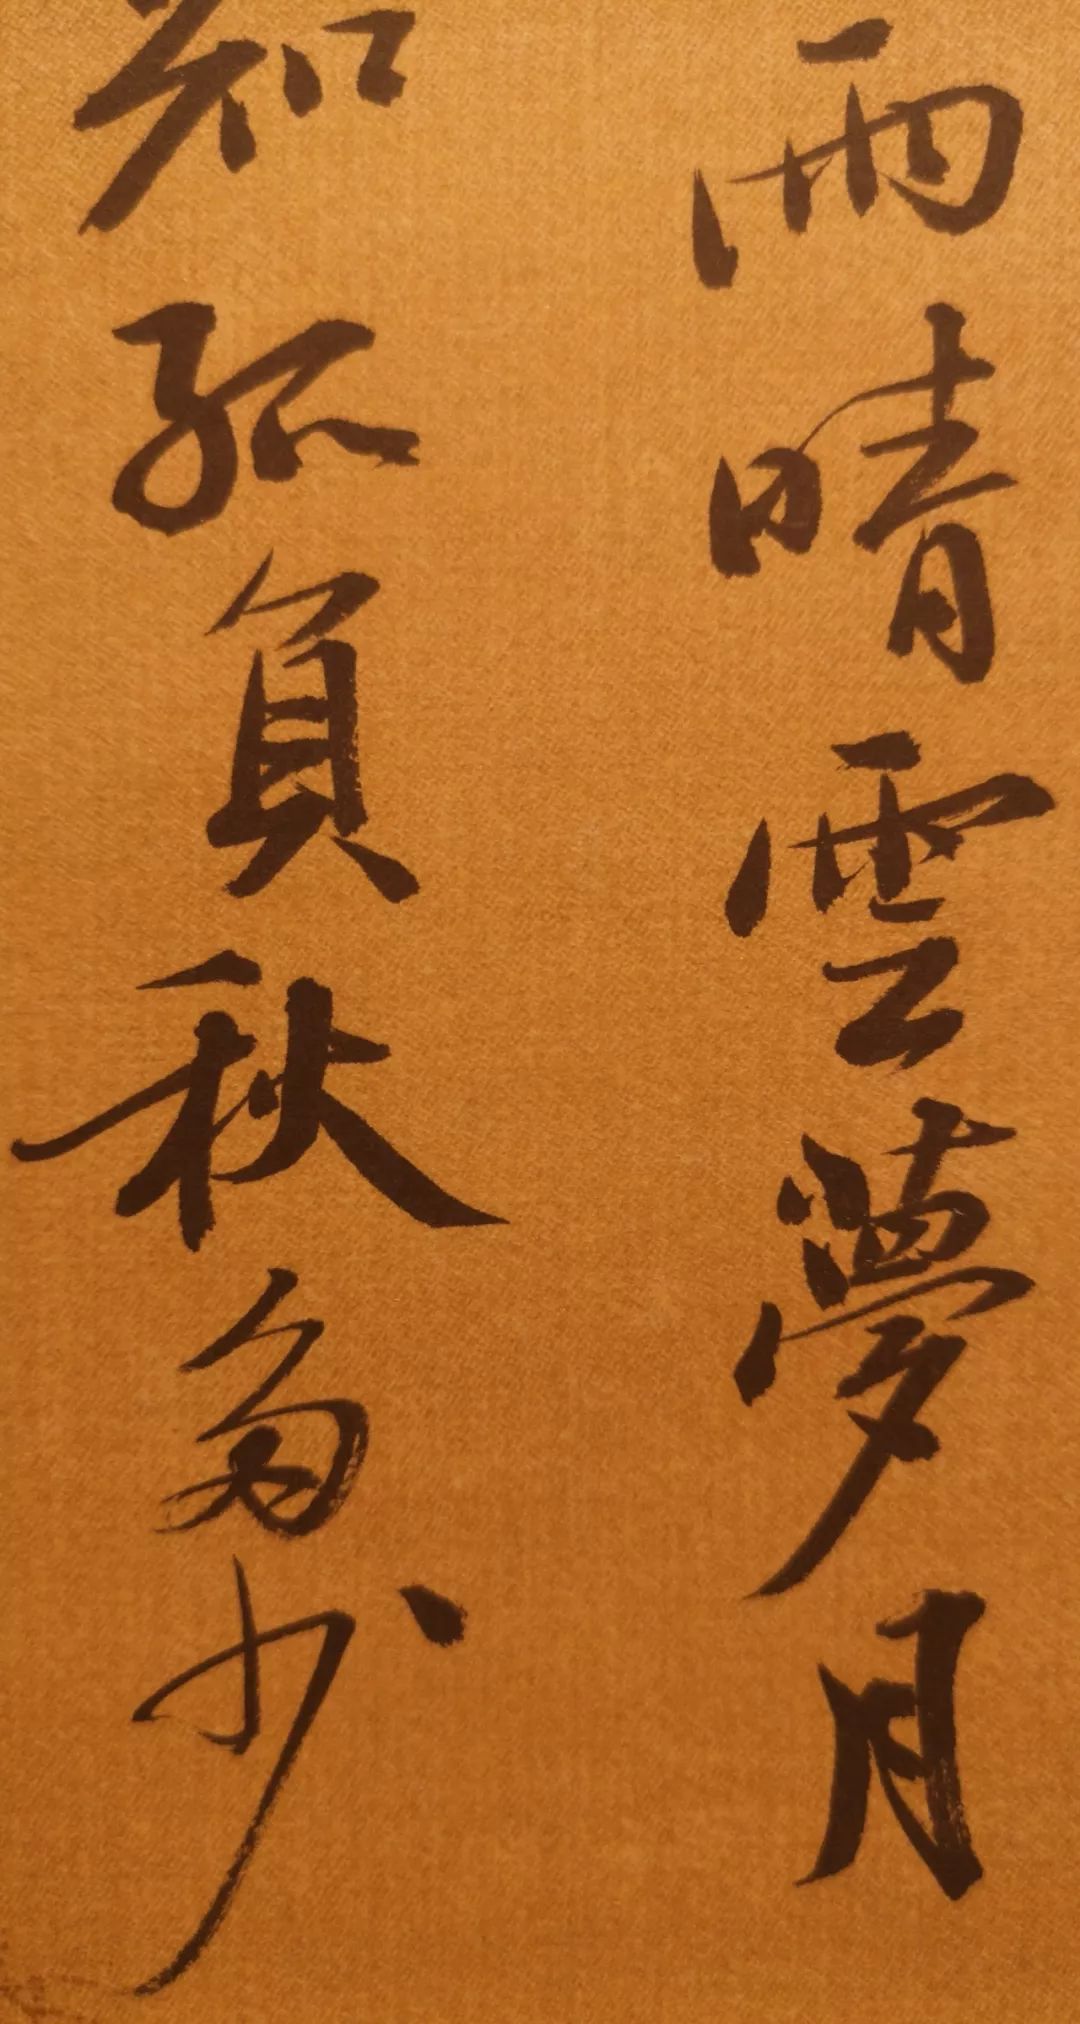 雨晴雲夢月
知孤負秋多少